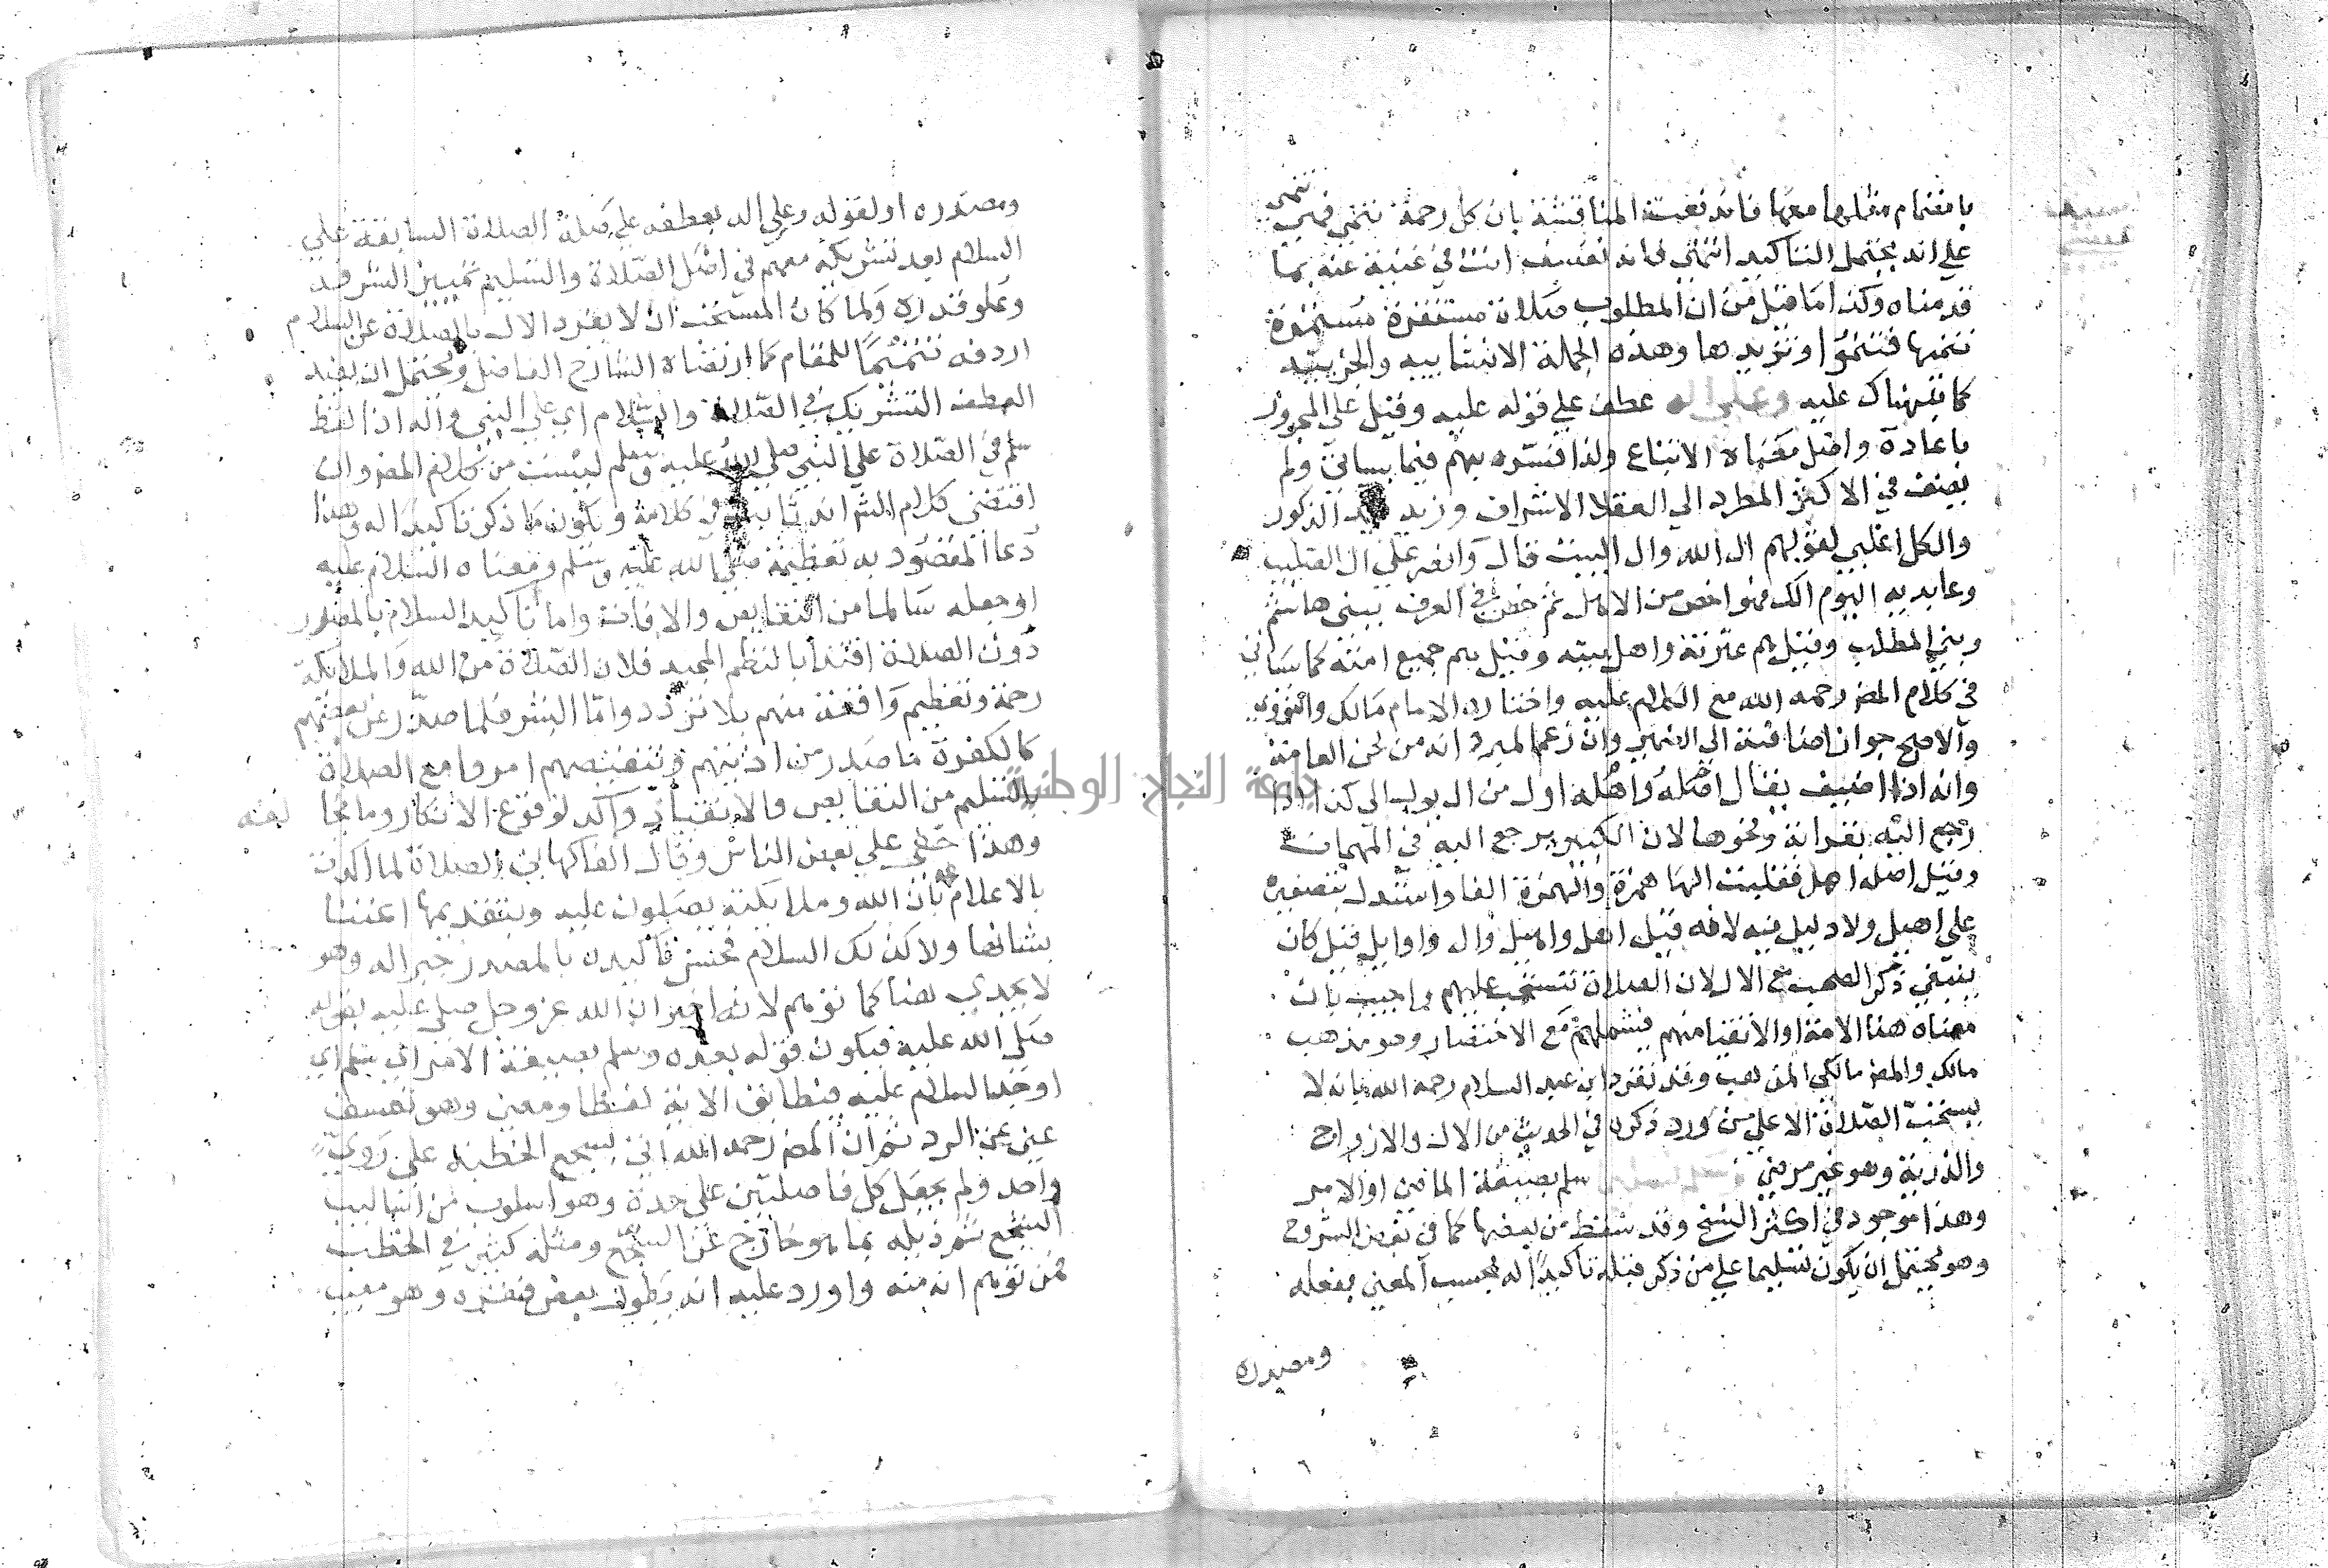 بانضمام مثلها معها فاندفعت المناقشة بان كل رحمة تنتهي فهي تنمى
على انه يحتمل التاكيد انتهى فانه تعسف انت في غنية عنه بما
قدمناه وكذا ما قيل من ان المطلوب صلاة مستقرة مستمرة
تنميها فتنمو او تزيدها وهذه الجملة الانشاييه والخبرييه
كما نبهناك عليه وعلى اله عطف على قوله عليه وقيل على المجرور
باعادة واصل معناه الاتباع ولذا فسره بهم فيما يساتي ولم
يضف في الاكثر المطرد الي العقلا الاشراف وزيد الذكور
والكل اغلبي لقولهم ال الله وال البيت قال وانصر على ال الصليب
وعابديه اليوم الك فهو اخص من الاهل ثم خص في العرف ببني هاشم
وبني المطلب وقيل هم عترته واهل بيته وقيل هم جميع امته كما سياتي
في كلام المص رحمه الله مع الكلام عليه واختاره الامام مالك والنووي
والاصح جواز اضافته الي الضمير وان زعم المبرد انه من لحن العامة
وانه اذا اضيف يقال اهله واصله اول من ال يول الى كذا اذا
رجع اليه بقرابة ونحوها لان الكبير يرجع اليه في المهمات
وقيل اصله اهل فقلبت الها همزة والهمزة الفا واستدل بتصغيره
على اهيل ولا دليل فيه لانه قيل اهل واهيل وال واوايل قيل كان
ينبغي ذكر الصحب مع الال لان الصلاة تستحب عليهم واجيب بان
معناه هنا الامة او الاتقيا منهم فيشملهم مع الاختصار وهو مذهب
مالك والمص مالكي المذهب وقد تفرد ابن عبد السلام رحمه الله بانه لا
يستحب الصلاة الا على من ورد ذكره في الحديث من الال والازواج
والذرية وهو غير مرضي وسلم تسليما سلم بصيغة الماضي او الامر
وهذا موجود في اكثر النسخ وقد سقط من بعضها كما في بعض الشروح
وهو يحتمل ان يكون تسليما على من ذكر قبله تاكيدا له بحسب المعنى بفعله
ومصدره
ومصدره او لقوله وعلى اله بعطفه على صلة الصلاة السابقة على
السلام بعد تشريكه معهم في اصل الصلاة والتسليم تمييز الشرفه
وعلو قدره ولما كان المستحب ان لا يفرد الال بالصلاة عن السلام
اردفه تتميما للمقام كما ارتضاه الشارح الفاضل ويحتمل ان يفيد
العطف التشريك في الصلاة والسلام اي على النبي واله اذ لفظ
سلم في الصلاة على النبي صلى الله عليه وسلم ليست من كلام المص وان
اقتضى كلام الشرا انه ثابت في كلامه ويكون ما ذكر تاكيدا له وهذا
دعا المقصود به تعظيمه صلى الله عليه وسلم ومعناه السلام عليه
او جعله سالما من النقايص والافات واما تاكيد السلام بالمصدر
دون الصلاة اقتدا بالنظم المجيد فلان الصلاة من الله والملايكة
رحمة وتعظيم وافقة منهم بلا تردد واما البشر فلما صدر عن بعضهم
كالكفرة ما صدر من اذيتهم وتنقيصهم امروا مع الصلاة
بالتسليم من النقايص والانقياد واكد لوقوع الانكار وما نحا نحنه
وهذا خفي على بعض الناس وقال الفاكهاني الصلاة لما اكدت
بالاعلام بان الله وملايكته يصلون عليه وبتقديمها اعتنا
بشانها ولا كذلك السلام فحسن تاكيده بالمصدر جبرا له وهو
لا يجدي هنا كما توهم لانه اخبر ان الله عز وجل صلى عليه بقوله
صلى الله عليه فيكون قوله بعده وسلم بصيغة الامر اي سلم اي
اوجد السلام عليه فيطابق الاية لفظا ومعنى وهو تعسف
غني عن الرد ثم ان المص رحمه الله اتي بسجع الخطبة على روي
واحد ولم يجعل كل فاصلتين على حدة وهو اسلوب من اساليب
السجع ثم ذيله بما هو خارج عن السجع ومثله كثير في الخطب
فمن توهم انه منه واورد عليه انه بطول بعض فقره وهو معيب